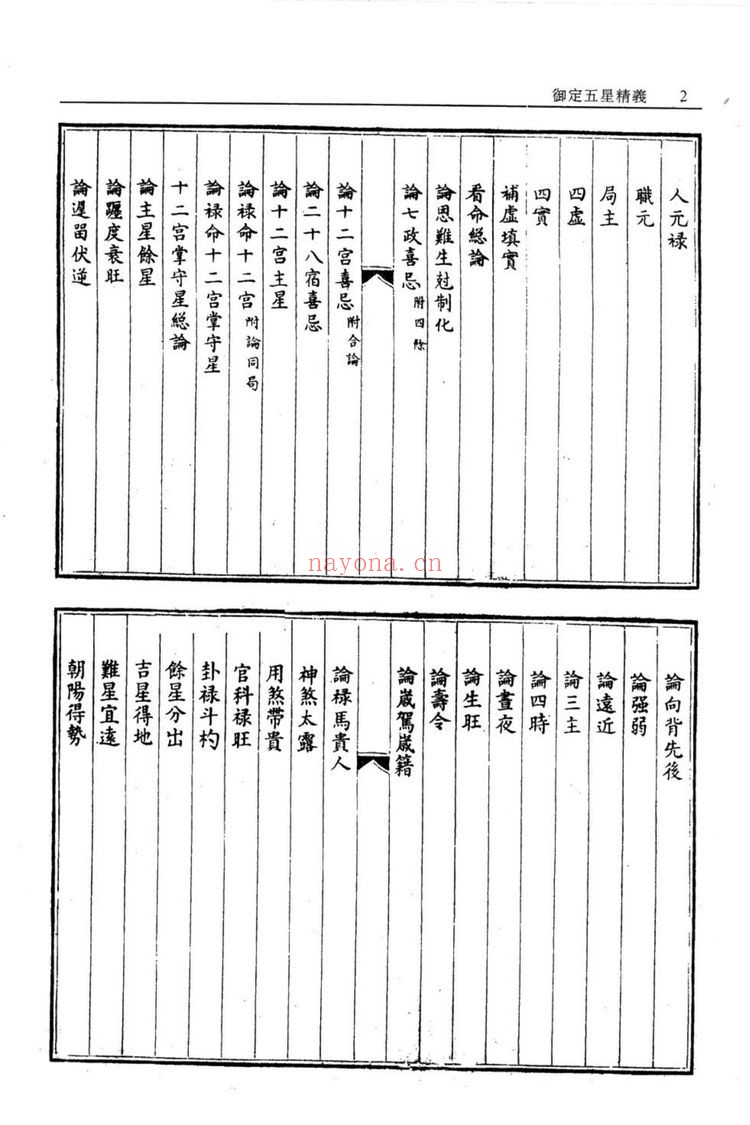 御定五星精義 2
人元禄
職元
局主
四虛
四實
補虛填實
看命総論
論恩難生尅制化
論七政喜忌 附四餘
論十二宮喜忌 附合論
論二十八宿喜忌
論十二宮主星
論禄命十二宮 附論同局
論禄命十二宮掌守星
十二宮掌守星総論
論主星餘星
論躔度衰旺
論遲留伏逆
nayona.cn
論向背先後
論強弱
論遠近
論三主
論四時
論晝夜
論生旺
論壽令
論歲駕歲籍
論禄馬貴人
神煞太露
用煞帶貴
官科禄旺
卦禄斗杓
餘星分出
吉星得地
難星宜遠
朝陽得勢